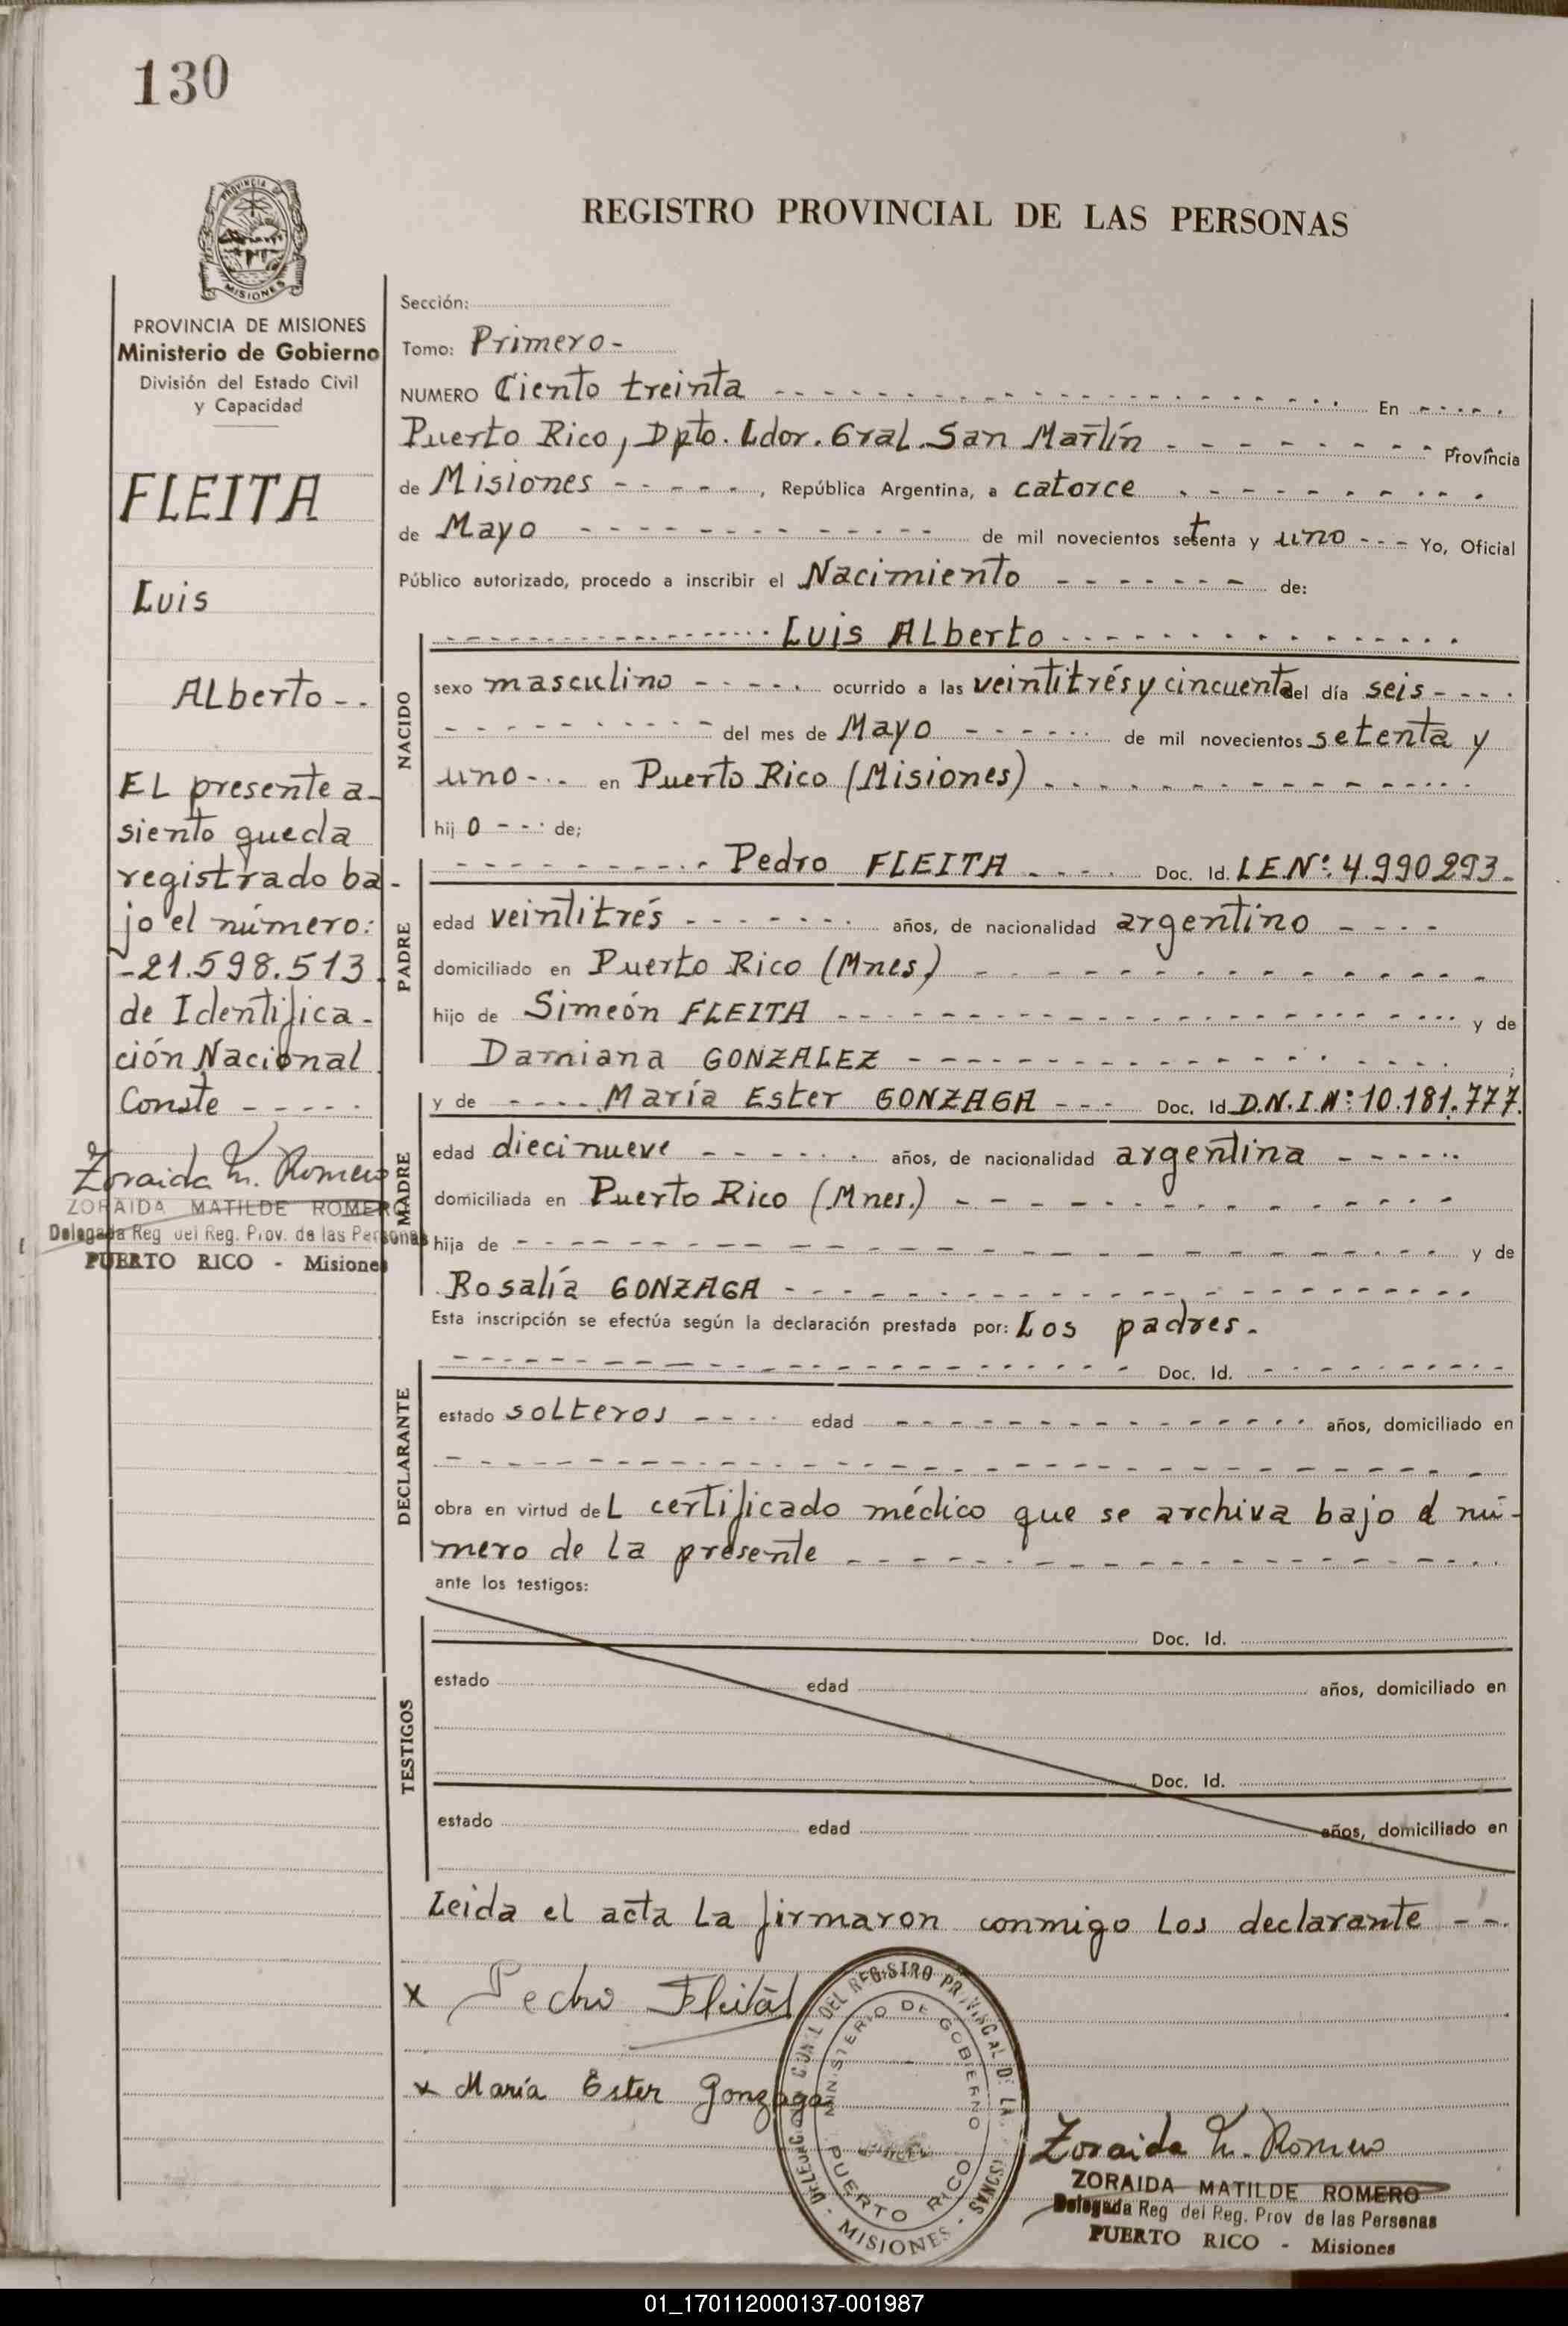 130
REGISTRO PROVINCIAL DE LAS PERSONAS
PROVINCIA DE MISIONES
Ministerio de Gobierno
División del Estado Civil
y Capacidad
FLEITA
Luis
Alberto - -
El presente a-
siento queda
registrado ba-
jo el número:
-21.598.513
de Identifica-
ción Nacional
Conste - - - - -
Zoraida M. Romero
ZORAIDA MATILDE ROMERO
Delegada Reg del Reg. Prov. de las Personas
PUERTO RICO - Misiones
Sección:
Tomo: Primero -
NUMERO Ciento treinta - - - En - - - -
Puerto Rico, Dpto. Ldor. Gral. San Martín - - - Provincia
de Misiones - - - - -, República Argentina, a catorce - - -
de Mayo - - - de mil novecientos setenta y uno - - - Yo, Oficial
Público autorizado, procedo a inscribir el Nacimiento - - - de:
NACIDO
- - - Luis Alberto - - -
sexo masculino - - - - - ocurrido a las veintitrés y cincuenta del día seis - - - -
- - - del mes de Mayo - - - de mil novecientos setenta y
uno - - - en Puerto Rico (Misiones) - - -
hij o - - - de;
PADRE
- - - Pedro FLEITA - - - - Doc. Id. L.E.Nº: 4.990.293.-
edad veintitrés - - - años, de nacionalidad argentino - - - -
domiciliado en Puerto Rico (Mnes) - - -
hijo de Simeón FLEITA - - - y de
Damiana GONZALEZ - - - ;
MADRE
y de - - - - María Ester GONZAGA - - - Doc. Id. D.N.I.Nº: 10.181.777.
edad diecinueve - - - años, de nacionalidad argentina - - - - -
domiciliada en Puerto Rico (Mnes.) - - -
hija de - - - y de
Rosalía GONZAGA - - -
Esta inscripción se efectúa según la declaración prestada por: Los padres.
DECLARANTE
- - - Doc. Id. - - -
estado solteros - - - - edad - - - años, domiciliado en
- - -
obra en virtud del certificado médico que se archiva bajo el nú-
mero de la presente - - -
ante los testigos:
TESTIGOS
Doc. Id.
estado edad años, domiciliado en
Doc. Id.
estado edad años, domiciliado en
Leida el acta la firmaron conmigo los declarante - -.
x Pedro Fleita
x María Ester Gonzaga
MINISTERIO DE GOBIERNO
PUERTO RICO
- MISIONES -
Zoraida M. Romero
ZORAIDA MATILDE ROMERO
Delegada Reg del Reg. Prov de las Personas
PUERTO RICO - Misiones
01_170112000137-001987